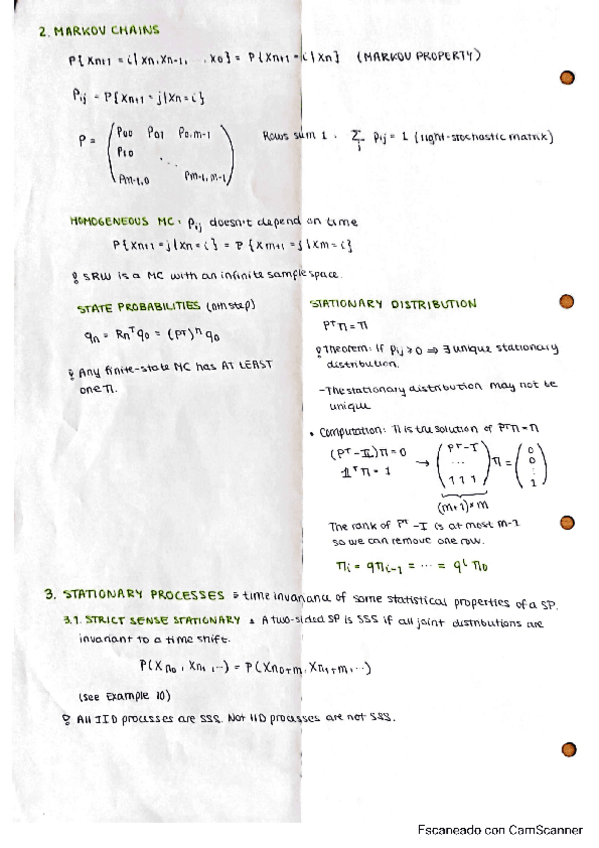 2. MARKOV CHAINS
P{Xn+1 = i | Xn, Xn-1, ... X0} = P{Xn+1 = i | Xn} (MARKOV PROPERTY)
Pij = P{Xn+1 = j | Xn = i}
P = ( P00 P01 P0,m-1
P10 ⋱
Pm-1,0 Pm-1,m-1 )
Rows sum 1. Σj Pij = 1 (right-stochastic matrix)
HOMOGENEOUS MC: Pij doesn't depend on time
P{Xn+1 = j | Xn = i} = P{Xm+1 = j | Xm = i}
! SRW is a MC with an infinite sample space.
STATE PROBABILITIES (nth step)
qn = Rn^T q0 = (P^T)^n q0
! Any finite-state MC has AT LEAST
one π.
STATIONARY DISTRIBUTION
P^T π = π
! Theorem: If Pij > 0 ⇒ ∃ unique stationary
distribution.
- The stationary distribution may not be
unique
• Computation: π is the solution of P^T π = π
(P^T - I) π = 0
1^T π = 1
→ ( P^T - I
...
1 1 1 ) π = ( 0
0
⋮
1 )
(m+1) × m
The rank of P^T - I is at most m-1
so we can remove one row.
πi = q πi-1 = ... = q^i π0
3. STATIONARY PROCESSES = time invariance of some statistical properties of a SP.
3.1. STRICT SENSE STATIONARY : A two-sided SP is SSS if all joint distributions are
invariant to a time shift.
P(Xn0, Xn1, ...) = P(Xn0+m, Xn1+m, ...)
(see Example 10)
! All IID processes are SSS. Not IID processes are not SSS.
Escaneado con CamScanner